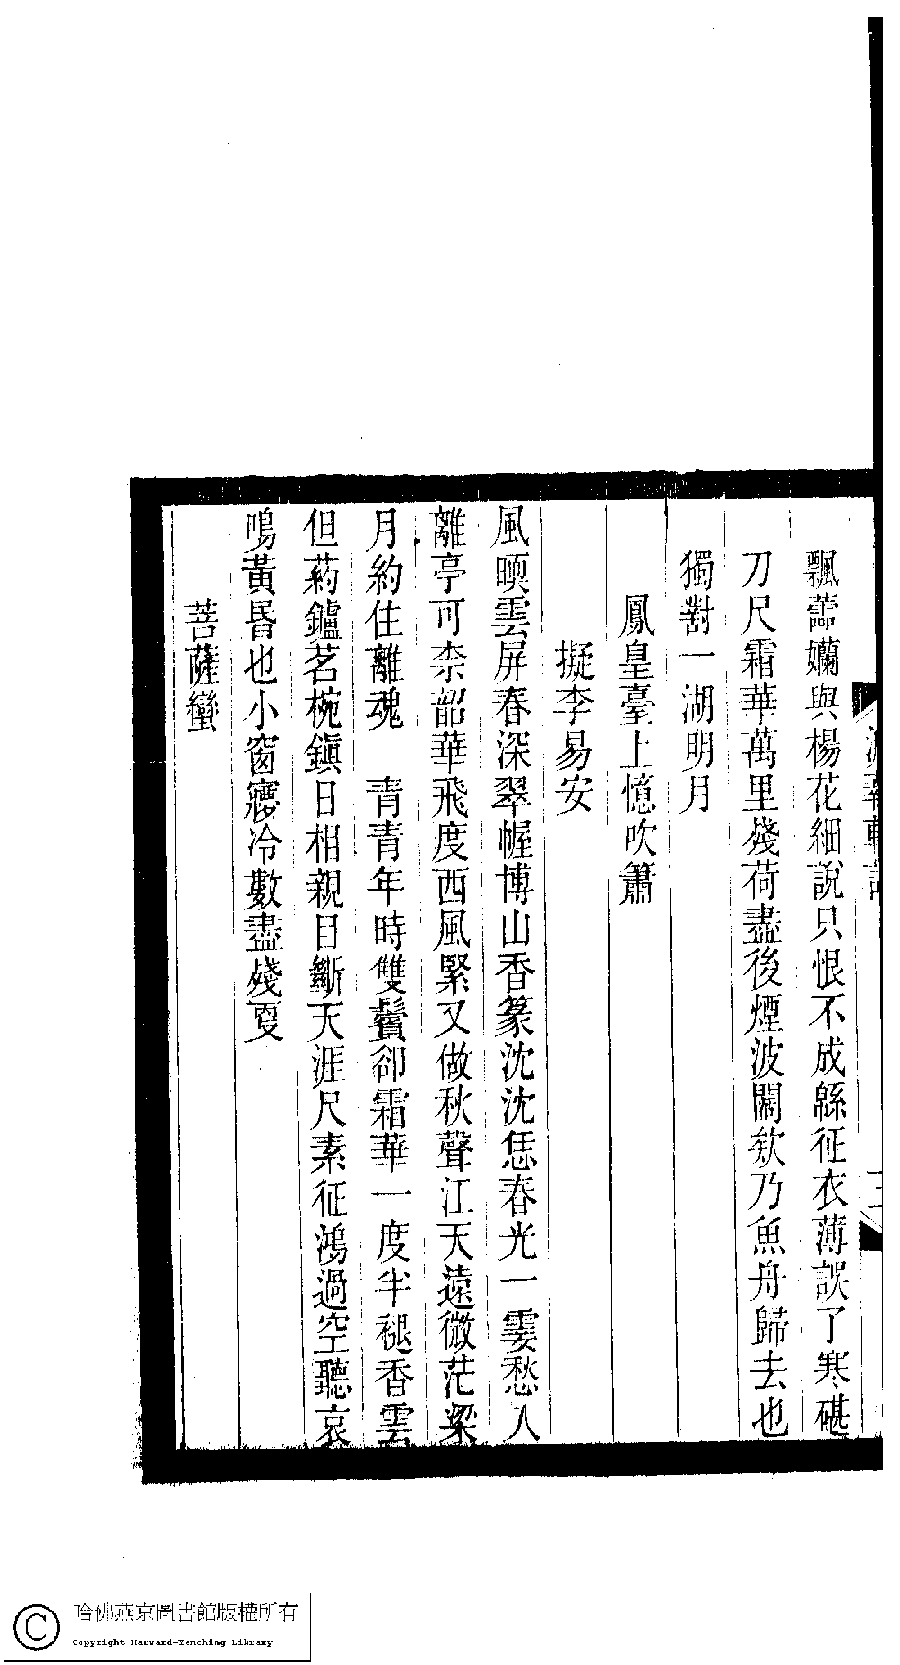 飄蕭嬾與楊花細說只恨不成緜征衣薄誤了寒碪
刀尺霜華萬里殘荷盡後煙波闊欸乃魚舟歸去也
獨對一湖明月
鳳皇臺上憶吹簫
擬李易安
風㬉雲屏春深翠幄博山香篆沈沈恁春光一霎愁人
離亭可柰韶華飛度西風緊又做秋聲江天遠微茫梁
月約住離魂 青青年時雙鬢卻霜華一度半褪香雲
但葯鑪茗椀鎭日相親目斷天涯尺素征鴻過空聽哀
鳴黃昏也小窗寱冷數盡殘更
菩薩蠻
哈佛燕京圖書館版權所有
Copyright Harvard-Yenching Library